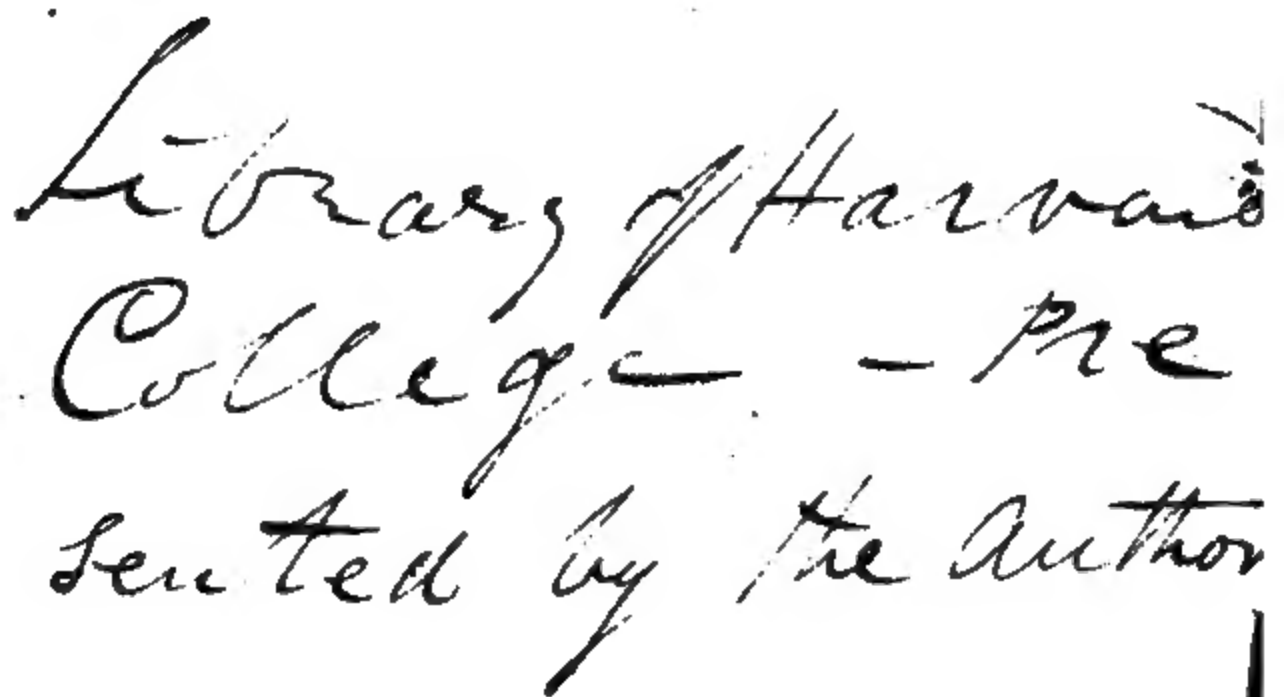 Library of Harvard
College - Pre
sented by the Author